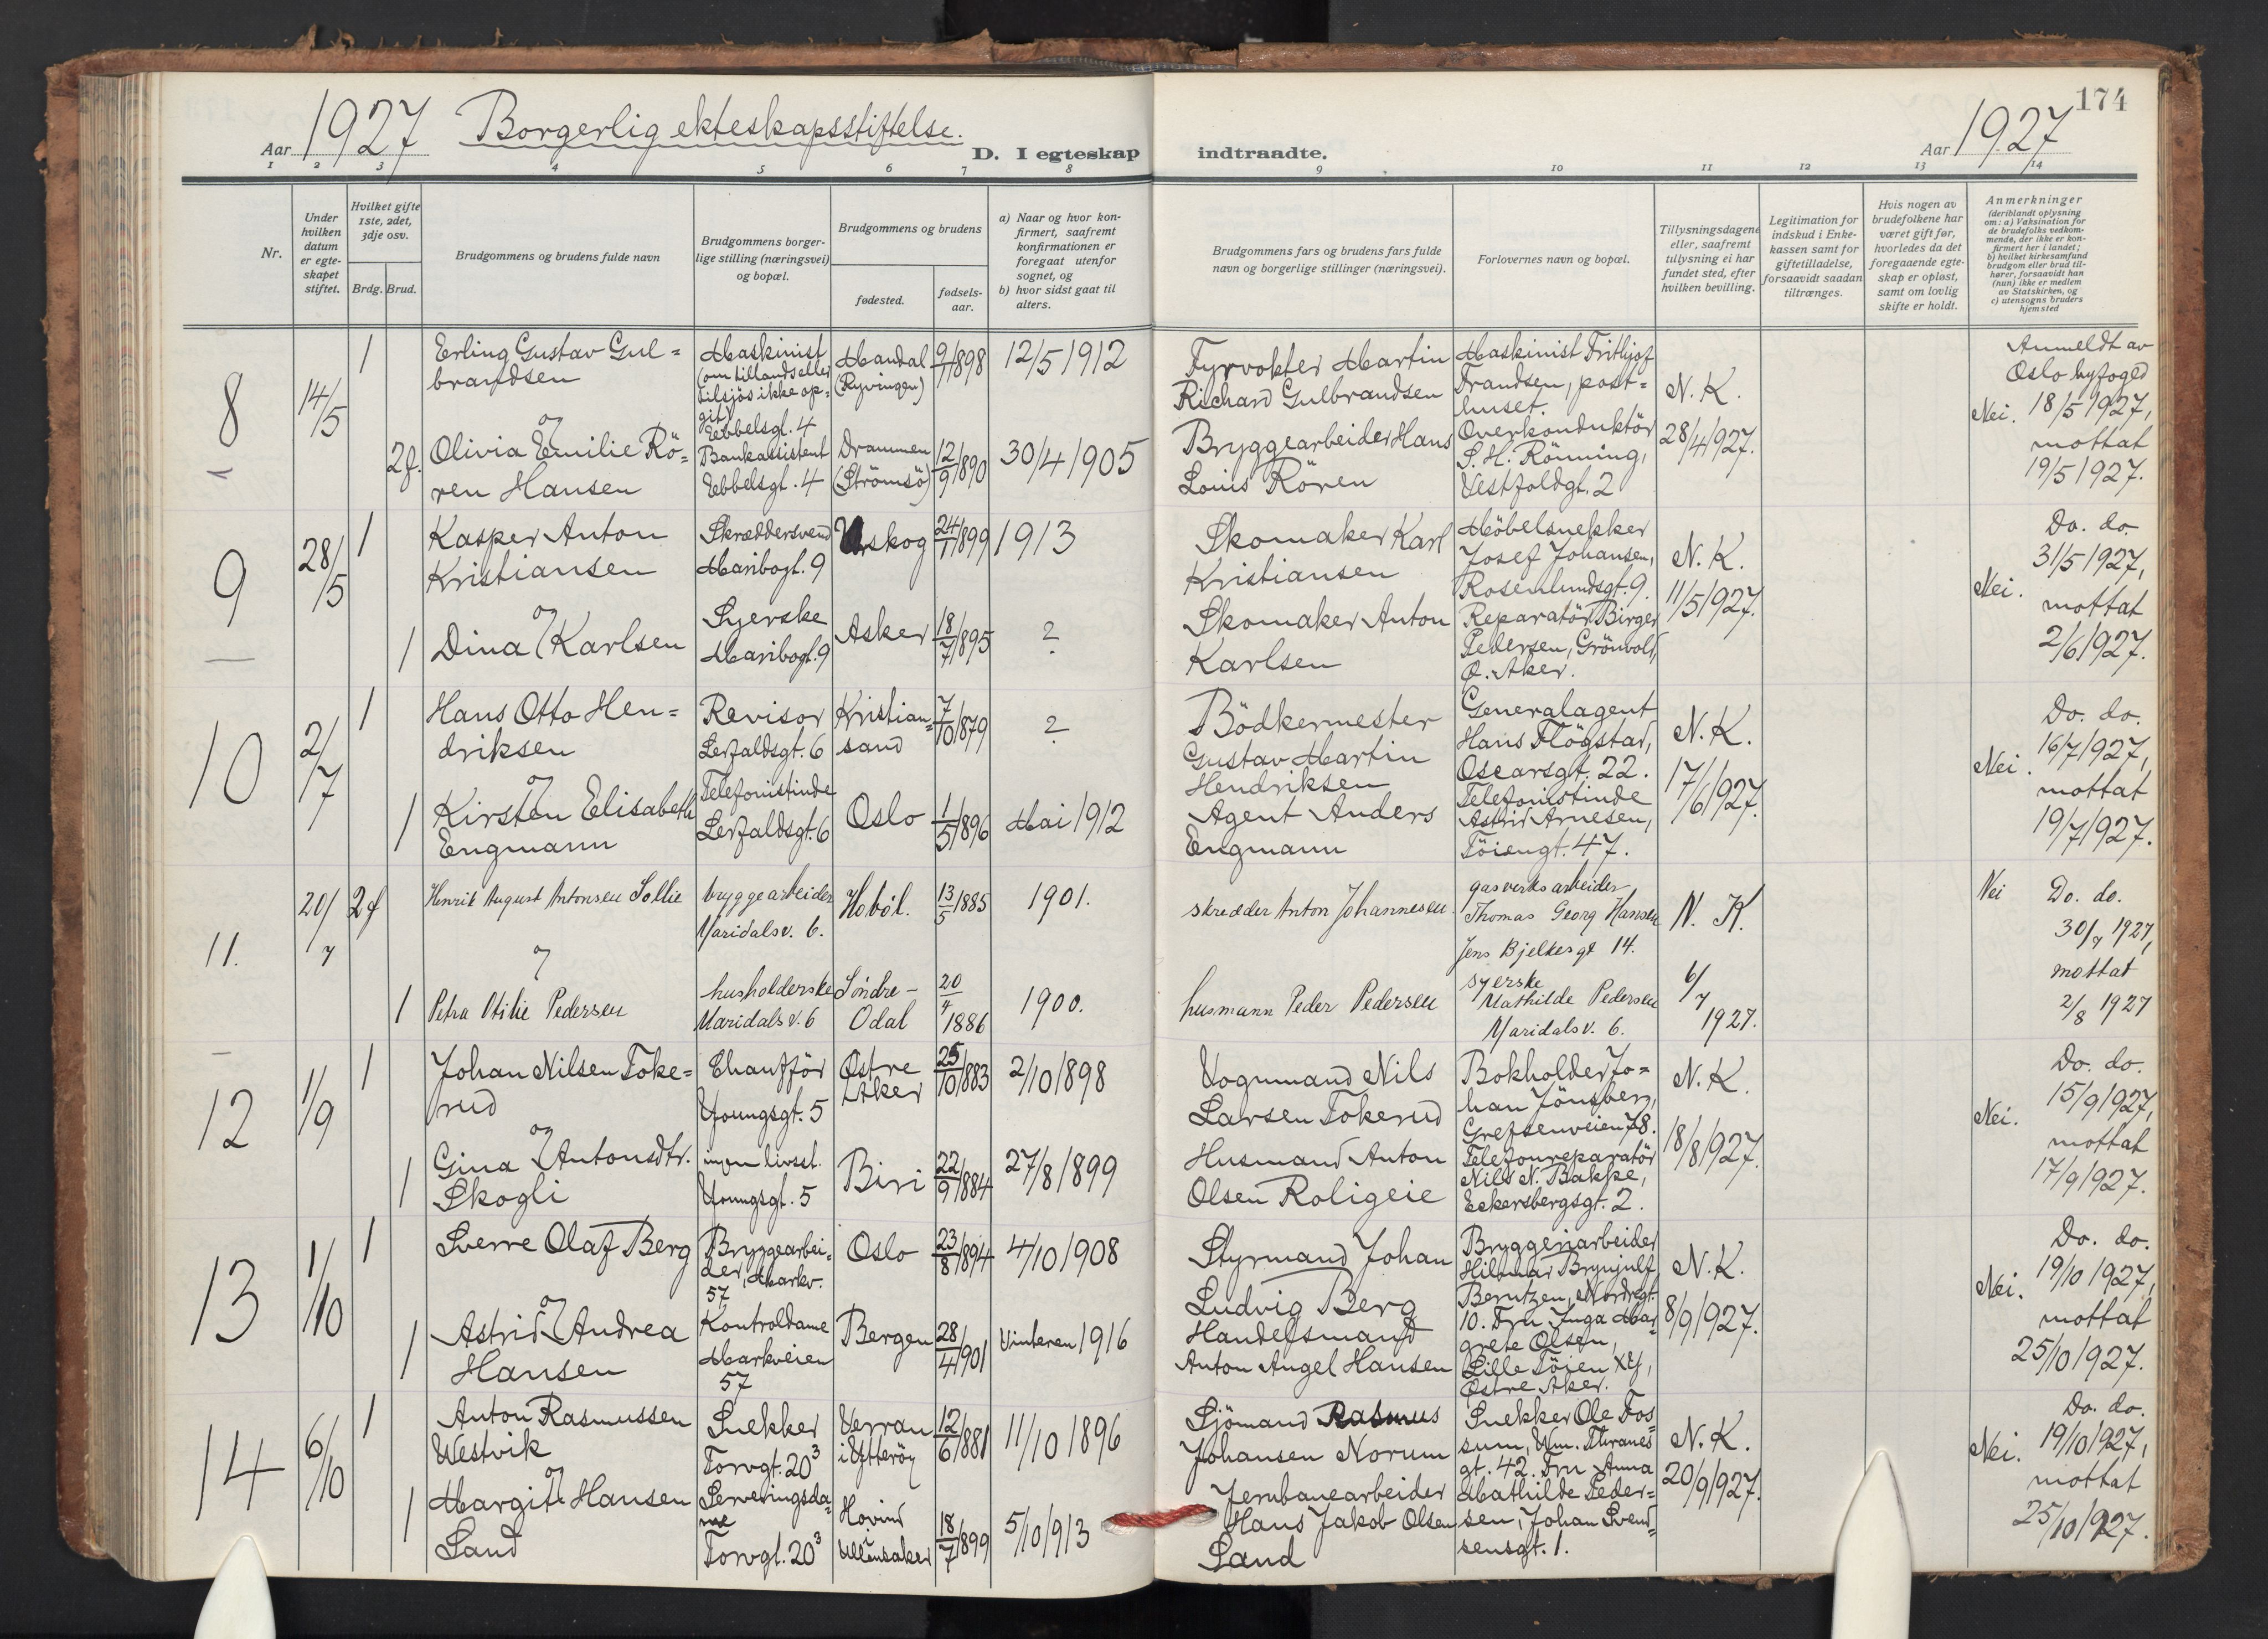 174
Aar 1927 Borgerlig ekteskapsstiftelse. D. I egteskap indtraadte. Aar 1927
1 2 3 4 5 6 7 8 9 10 11 12 13 14
Nr.
Under hvilken datum er egteskapet stiftet.
Hvilket gifte 1ste, 2det, 3dje osv.
Brdg. Brud.
Brudgommens og brudens fulde navn
Brudgommens borgerlige stilling (næringsvei) og bopæl.
Brudgommens og brudens
fødested.
fødselsaar.
a) Naar og hvor konfirmert, saafremt konfirmationen er foregaat utenfor sognet, og
b) hvor sidst gaat til alters.
Brudgommens fars og brudens fars fulde navn og borgerlige stillinger (næringsvei).
Forlovernes navn og bopæl.
Tillysningsdagene eller, saafremt tillysning ei har fundet sted, efter hvilken bevilling.
Legitimation for indskud i Enkekassen samt for giftetilladelse, forsaavidt saadan tiltrænges.
Hvis nogen av brudefolkene har været gift før, hvorledes da det foregaaende egteskap er opløst, samt om lovlig skifte er holdt.
Anmerkninger (deriblandt oplysning om: a) Vaksination for de brudefolks vedkommende, der ikke er konfirmert her i landet; b) hvilket kirkesamfund brudgom eller brud tilhører, forsaavidt han (hun) ikke er medlem av Statskirken, og c) utensogns bruders hjemsted
8
14/5
1
Erling Gustav Gul=
brandsen
og
Maskinist
(om tillands eller
tilsjøs ikke op=
git)
Ebbelsgt. 4
Mandal
(Ryvingen)
9/1 1898
12/5 1912
Fyrvokter Martin
Richard Gulbrandsen
Maskinist Frithjof
Frandsen, post=
huset.
N. K.
28/4 1927.
Nei.
Anmeldt av
Oslo byfoged
18/5 1927,
mottat
19/5 1927.
2g.
Olivia Emilie Rö=
ren Hansen
Bankassistent
Ebbelsgt. 4
Drammen
(Strömsö)
12/9 1890
30/4 1905
Bryggearbeider Hans
Louis Rören
Overkonduktör
S. H. Rönning,
Vestfoldgt. 2
9
28/5
1
Kasper Anton
Kristiansen
og
Skræddersvend
Maribogt. 9
Urskog
24/1 1899
1913
Skomaker Karl
Kristiansen
Möbelsnekker
Josef Johansen,
Rosenlundsgt. 9.
N. K.
11/5 1927.
Nei.
Do. do.
31/5 1927,
mottat
2/6 1927.
1
Dina Karlsen
Syerske
Maribogt. 9
Asker
18/7 1895
?
Skomaker Anton
Karlsen
Reparatör Birger
Pedersen, Grönvold,
Ø. Aker.
10
2/7
1
Hans Otto Hen=
driksen
og
Revisor
Lerfaldsgt. 6
Kristian=
sand
7/10 1879
?
Bödkermester
Gustav Martin
Hendriksen
Generalagent
Hans Flögstad,
Oscarsgt. 22.
N. K.
17/6 1927.
Nei.
Do. do.
16/7 1927,
mottat
19/7 1927.
1
Kirsten Elisabeth
Engmann
Telefonistinde
Lerfaldsgt. 6
Oslo
1/5 1896
Mai 1912
Agent Anders
Engmann
Telefonistinde
Astrid Arnesen,
Töiengt. 47.
11.
20/7
2g
Henrik August Antonsen Sollie
og
bryggearbeider
Maridalsv. 6.
Hobøl.
13/5 1885
1901.
skredder Anton Johannesen.
gasverksarbeider
Thomas Georg Hansen
Jens Bjelkes gt 14.
N. K.
6/7 1927.
Nei
Do. do.
30/7 1927,
mottat
2/8 1927
1
Petra Otilie Pedersen
husholderske
Maridalsv. 6
Söndre-
Odal
20/4 1886
1900.
husmann Peder Pedersen
syerske
Mathilde Pedersen
Maridalsv. 6.
12
1/9
1
Johan Nilsen Toke=
rud
og
Chaufför
Youngsgt. 5
Østre
Aker
25/10 1883
2/10 1898
Vognmand Nils
Larsen Tokerud
Bokholder Jo=
han Jönsberg,
Grefsenveien 78.
N. K.
18/8 1927.
Nei.
Do. do.
15/9 1927,
mottat
17/9 1927.
1
Gina Antonsdtr.
Skogli
ingen livsst.
Youngsgt. 5
Biri
22/9 1884
27/8 1899
Husmand Anton
Olsen Roligeie
Telefonreparatör
Nils N. Bakke,
Eckersbergsgt. 2.
13
1/10
1
Sverre Olaf Berg
og
Bryggearbei=
der, Markv.
57
Oslo
23/8 1894
4/10 1908
Styrmand Johan
Ludvig Berg
Bryggeriarbeider
Hilmar Brynjulf
Berntzen, Nordregt.
10. Fru Inga Mar=
grete Olsen,
Lille Töien
Østre Aker.
N. K.
8/9 1927.
Nei.
Do. do.
19/10 1927,
mottat
25/10 1927.
1
Astrid Andrea
Hansen
Kontroldame
Markveien
57
Bergen
28/4 1901
Vinteren 1916
Handelsmand
Anton Angel Hansen
14
6/10
1
Anton Rasmussen
Westvik
og
Snekker
Torvgt. 20³
Verran
i Ytterøy
12/6 1881
11/10 1896
Sjömand Rasmus
Johansen Norum
Snekker Ole Fos=
sum, Wm. Thranes
gt. 42. Fru Anna
Mathilde Peder=
sen, Johan Svend=
sensgt. 1.
N. K.
20/9 1927.
Nei.
Do. do.
19/10 1927,
mottat
25/10 1927.
1
Margit Hansen
Sand
Serveringsda=
me
Torvgt. 20³
Hovind
Ullensaker
18/7 1899
5/10 1913
Jernbanearbeider
Hans Jakob Olsen
Sand